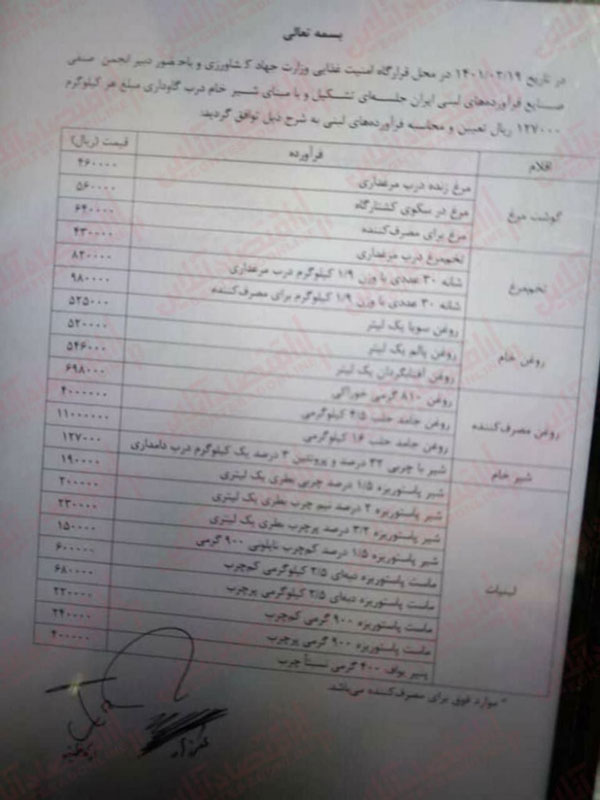 بسمه تعالی
در تاریخ ۱۴۰۱/۰۲/۱۹ در محل قرارگاه امنیت غذایی وزارت جهاد کشاورزی و باحضور دبیر انجمن صنفی
صنایع فرآورده‌های لبنی ایران جلسه‌ای تشکیل و با مبنای شیر خام درب گاوداری مبلغ هر کیلوگرم
۱۲۷۰۰۰ ریال تعیین و محاسبه فرآورده‌های لبنی به شرح ذیل توافق گردید.
اقلام فرآورده قیمت (ریال)
گوشت مرغ
مرغ زنده درب مرغداری ۴۶۰۰۰۰
مرغ در سکوی کشتارگاه ۵۶۰۰۰۰
مرغ برای مصرف‌کننده ۶۴۰۰۰۰
تخم‌مرغ
تخم‌مرغ درب مرغداری ۴۳۰۰۰۰
شانه ۳۰ عددی با وزن ۱/۹ کیلوگرم درب مرغداری ۸۲۰۰۰۰
شانه ۳۰ عددی با وزن ۱/۹ کیلوگرم برای مصرف‌کننده ۹۸۰۰۰۰
روغن خام
روغن سویا یک لیتر ۵۲۵۰۰۰
روغن پالم یک لیتر ۵۲۰۰۰۰
روغن آفتابگردان یک لیتر ۵۴۶۰۰۰
روغن مصرف‌کننده
روغن ۸۱۰ گرمی خوراکی ۶۹۸۰۰۰
روغن جامد حلب ۴/۵ کیلوگرمی ۴۰۰۰۰۰۰
روغن جامد حلب ۱۶ کیلوگرمی ۱۱۰۰۰۰۰۰
شیر خام
شیر با چربی ۳۲ درصد و پروتئین ۳ درصد یک کیلوگرم درب دامداری ۱۲۷۰۰۰
لبنیات
شیر پاستوریزه ۱/۵ درصد چربی بطری یک لیتری ۱۹۰۰۰۰
شیر پاستوریزه ۲ درصد نیم چرب بطری یک لیتری ۲۰۰۰۰۰
شیر پاستوریزه ۳/۲ درصد پرچرب بطری یک لیتری ۲۳۰۰۰۰
شیر پاستوریزه ۱/۵ درصد کم‌چرب نایلونی ۹۰۰ گرمی ۱۵۰۰۰۰
ماست پاستوریزه دبه‌ای ۲/۵ کیلوگرمی کم‌چرب ۶۰۰۰۰۰
ماست پاستوریزه دبه‌ای ۲/۵ کیلوگرمی پرچرب ۶۸۰۰۰۰
ماست پاستوریزه ۹۰۰ گرمی کم‌چرب ۲۲۰۰۰۰
ماست پاستوریزه ۹۰۰ گرمی پرچرب ۲۴۰۰۰۰
پنیر یواف ۴۰۰ گرمی نسبتاً چرب ۴۰۰۰۰۰
* موارد فوق برای مصرف‌کننده می‌باشد.